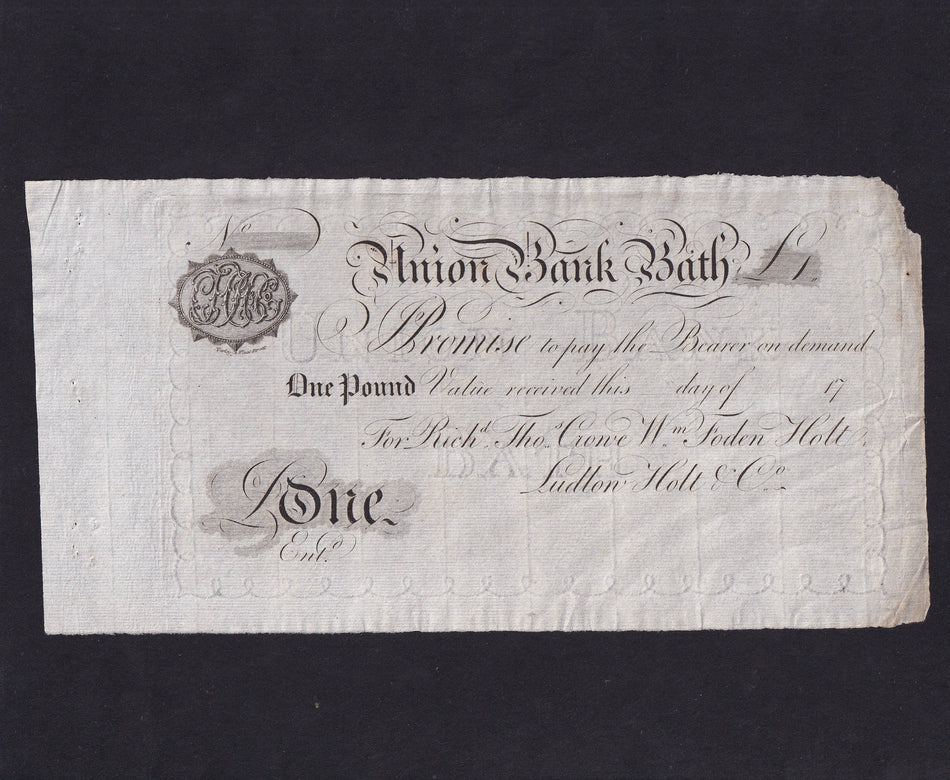 No
Union Bank Bath £1
I Promise to pay the Bearer on demand
One Pound Value received this day of 17
For Richd. Thos. Crowe Wm. Foden Holt
Ludlow Holt & Co.
£One
Entd.
UNION BANK
BATH